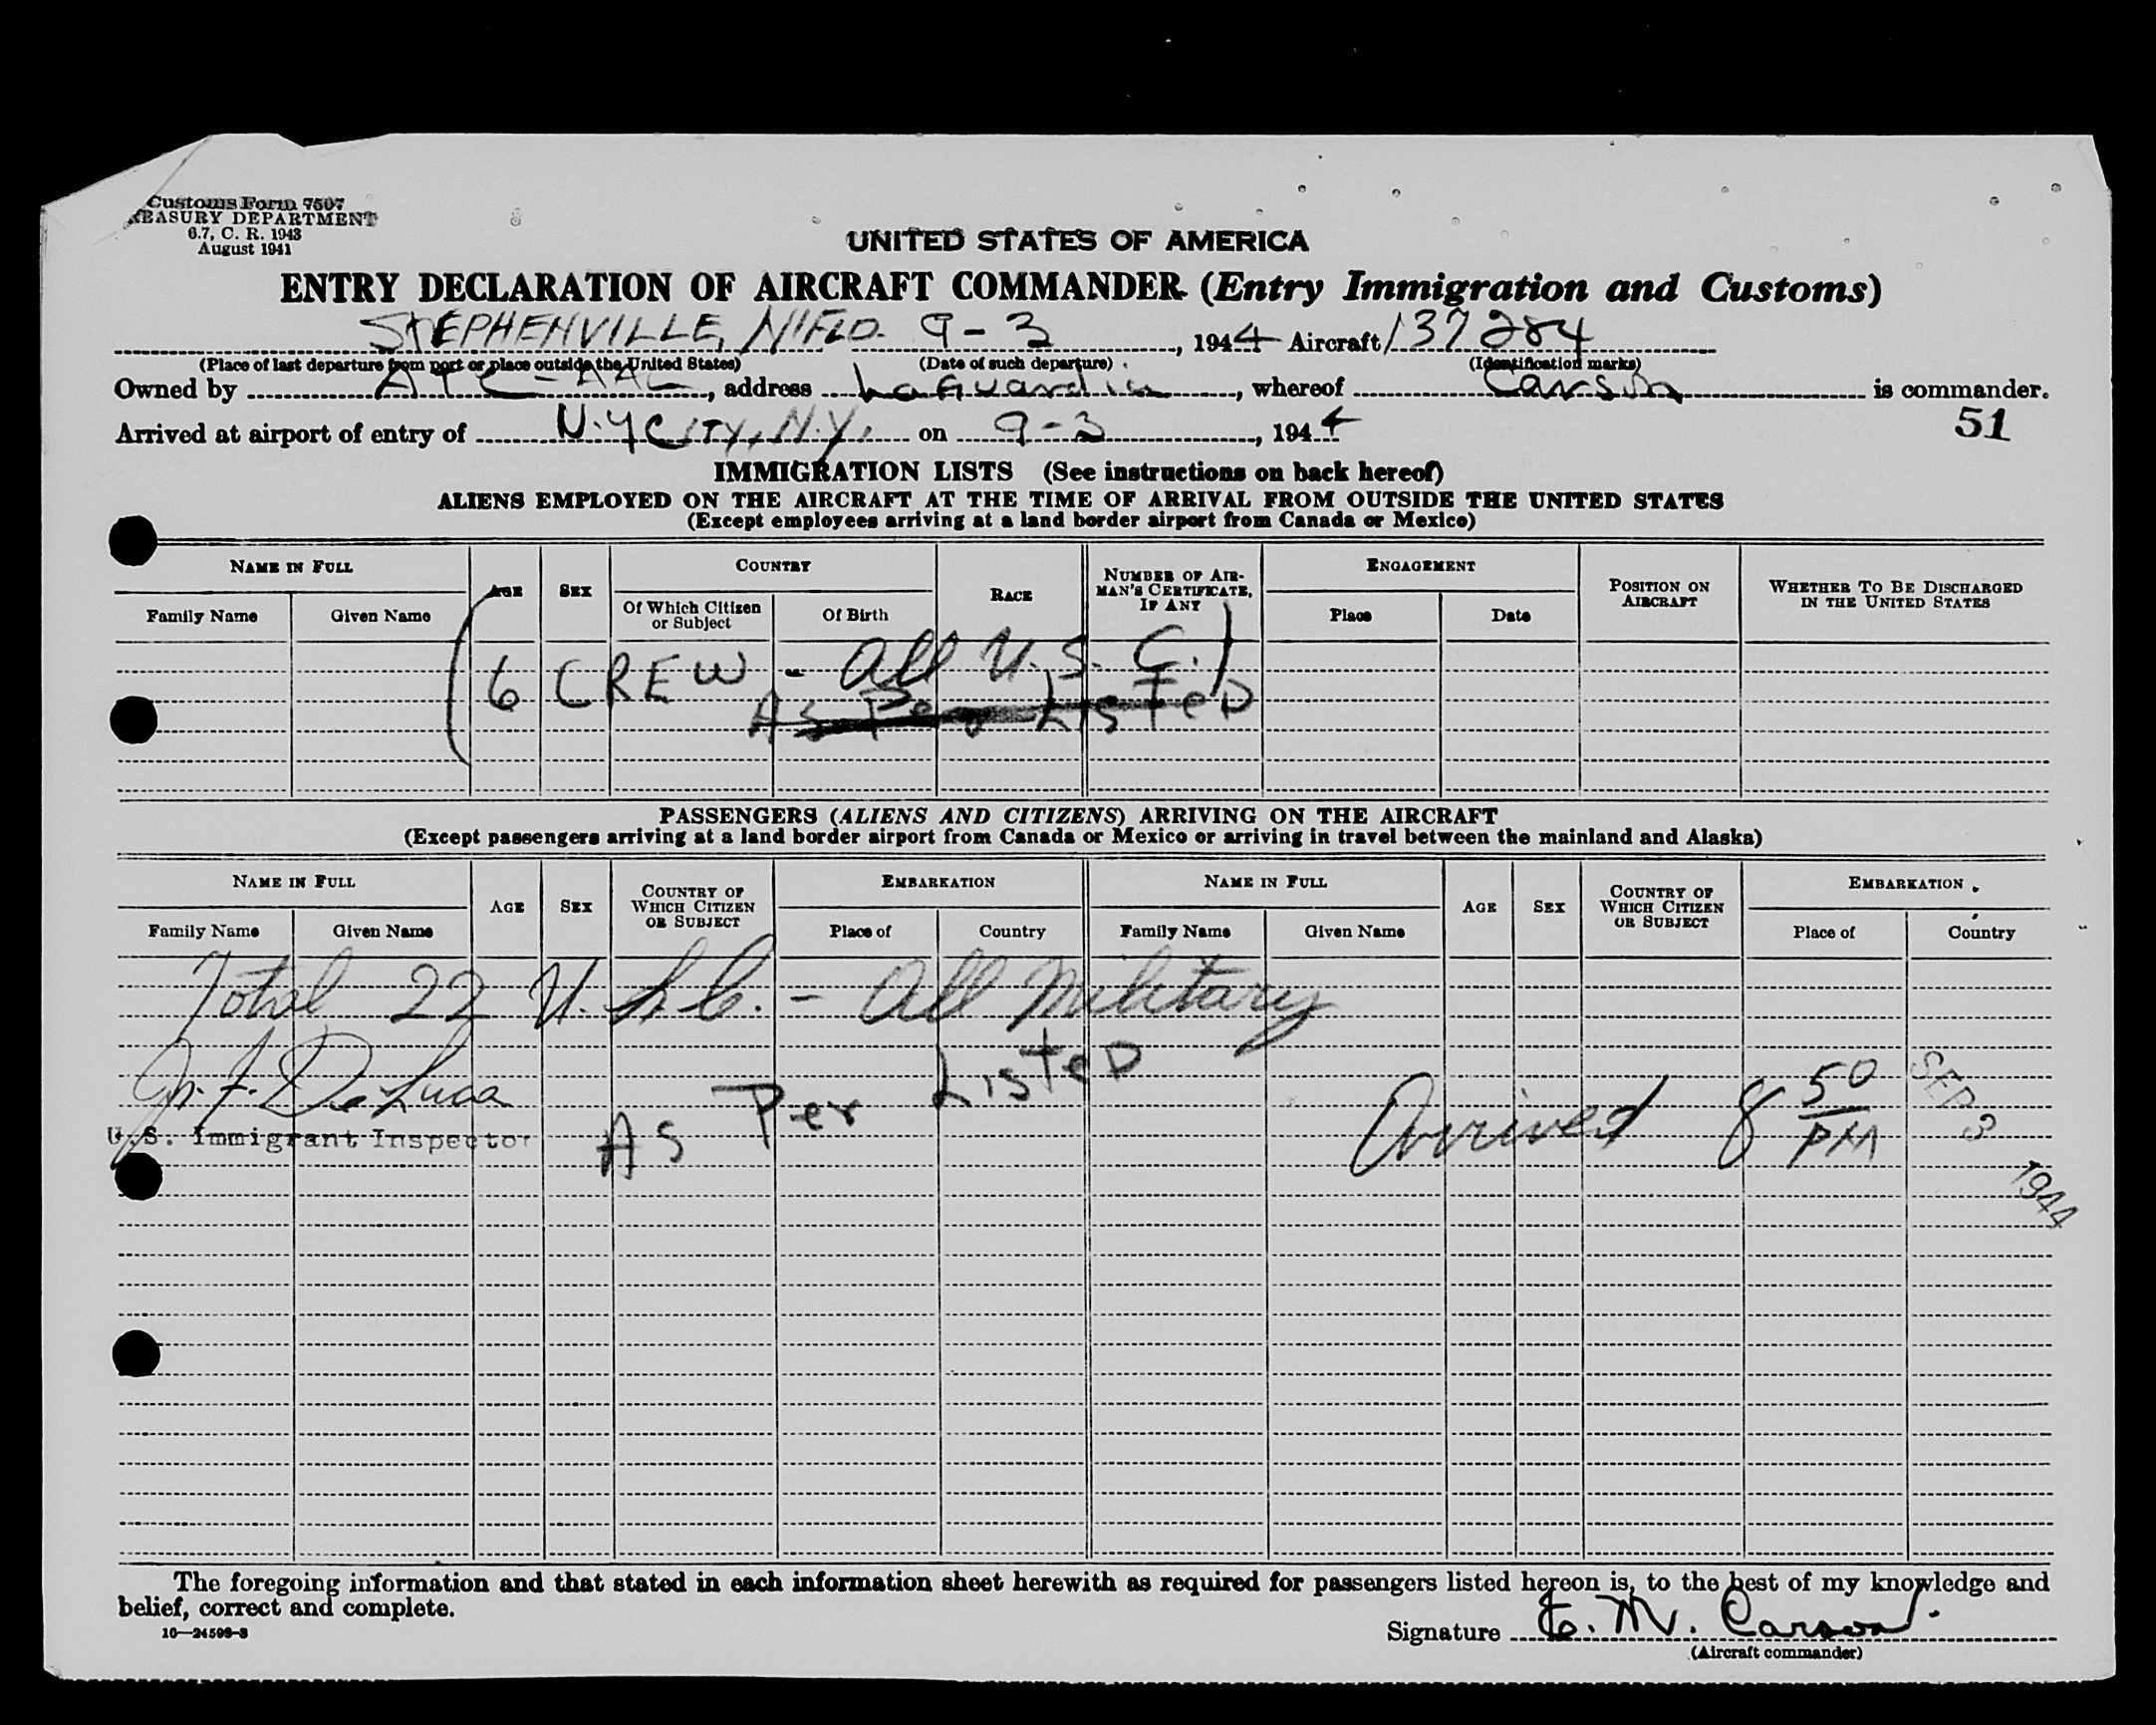 Customs Form 7507
TREASURY DEPARTMENT
6.7, C. R. 1943
August 1941
UNITED STATES OF AMERICA
ENTRY DECLARATION OF AIRCRAFT COMMANDER (Entry Immigration and Customs)
STEPHENVILLE, N'FLD. 9-3, 1944 Aircraft 137284
(Place of last departure from port or place outside the United States) (Date of such departure) (Identification marks)
Owned by ATC-AAL, address LaGuardia, whereof Carson is commander.
51
Arrived at airport of entry of N.Y City, N.Y. on 9-3, 1944
IMMIGRATION LISTS (See instructions on back hereof)
ALIENS EMPLOYED ON THE AIRCRAFT AT THE TIME OF ARRIVAL FROM OUTSIDE THE UNITED STATES
(Except employees arriving at a land border airport from Canada or Mexico)
NAME IN FULL AGE SEX COUNTRY RACE NUMBER OF AIRMAN'S CERTIFICATE, IF ANY ENGAGEMENT POSITION ON AIRCRAFT WHETHER TO BE DISCHARGED IN THE UNITED STATES
Family Name Given Name Of Which Citizen or Subject Of Birth Place Date
(6 CREW - All U.S. C.)
As Per Listed
PASSENGERS (ALIENS AND CITIZENS) ARRIVING ON THE AIRCRAFT
(Except passengers arriving at a land border airport from Canada or Mexico or arriving in travel between the mainland and Alaska)
NAME IN FULL AGE SEX COUNTRY OF WHICH CITIZEN OR SUBJECT EMBARKATION NAME IN FULL AGE SEX COUNTRY OF WHICH CITIZEN OR SUBJECT EMBARKATION
Family Name Given Name Place of Country Family Name Given Name Place of Country
Total 22 U.S.C. - All Military
De Luca
As Per Listed
Arrived 8 50 PM
SEP 3 1944
U.S. Immigrant Inspector
The foregoing information and that stated in each information sheet herewith as required for passengers listed hereon is, to the best of my knowledge and
belief, correct and complete.
16—24599-3
Signature M. Carson
(Aircraft commander)